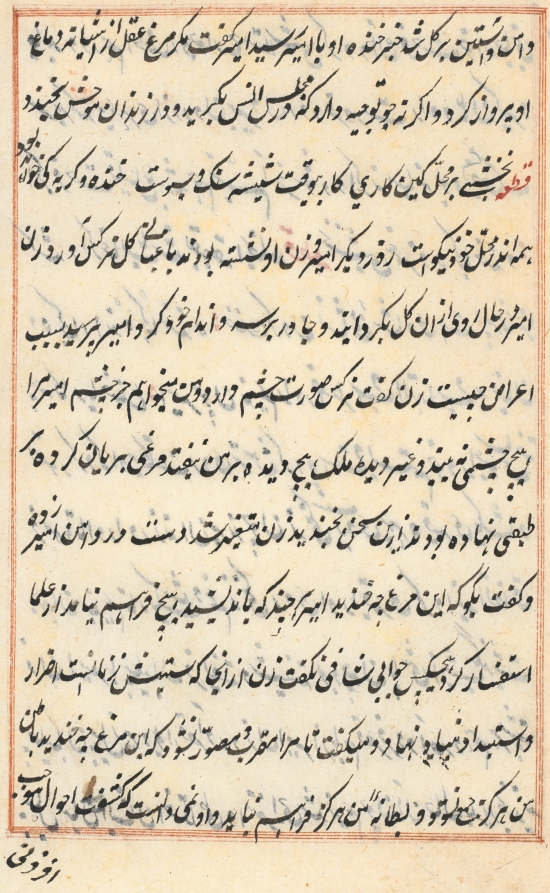 دامن واشتین بر کل شد خبر خنده او با امیر رسید امیر کفت مکر مرغ عقل از اشیانه دماغ
او پرواز کرد و اکر نه چو توجیه دارد که در مجلس انس بکرید و در زندان هوحش بخندد
قطعه نخشبی بر محل کین کاری کار بیوقت شیشه سنک و سبوست خنده و کریه کی خواه بود
همه اندر محل خود نیکوست روز دیکر امیر و زن او نشسته بودند باغبانی کل نرکس آورد زن
امیر در حال روی از ان کل بکردانید و چادر بر سر و اندام خود کرد امیر پرسید سبب
اعراض چیست زن کفت نرکس صورت چشم دارد و من نمیخواهم جز چشم امیر مرا
هیچ چشمی نه بیند و غیر دیده ملک هیچ دیده بر من نیفتد مرغی بریان کرده بر
طبقی نهاده بودند ازین سخن بخندید زن متغیر شد دست در دامن امیر زده
و کفت بکو که این مرغ چه خندید امیر هر چند که باندیشید هیچ فراهم نیامد از علما
استفسار کرد هیچکس جوابی شافی نکفت زن از انجا که ستیزش زنانست اضرار
و استبداد بنیاد نهاد و میکفت تا مرا مقرر و مصور نشود که این مرغ چه خندید باطن
من هرکز جمع نشود و بطانهٔ من هرکز فراهم نیاید و او نمی دانست که کشف احوال موجب
افزونی